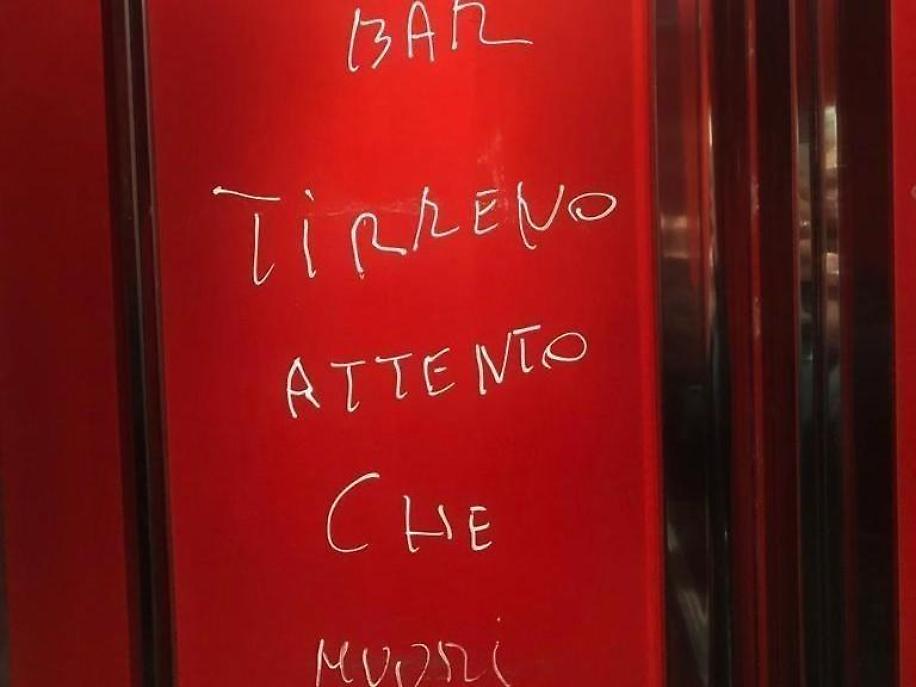 BAR
TIRRENO
ATTENTO
CHE
MUORI